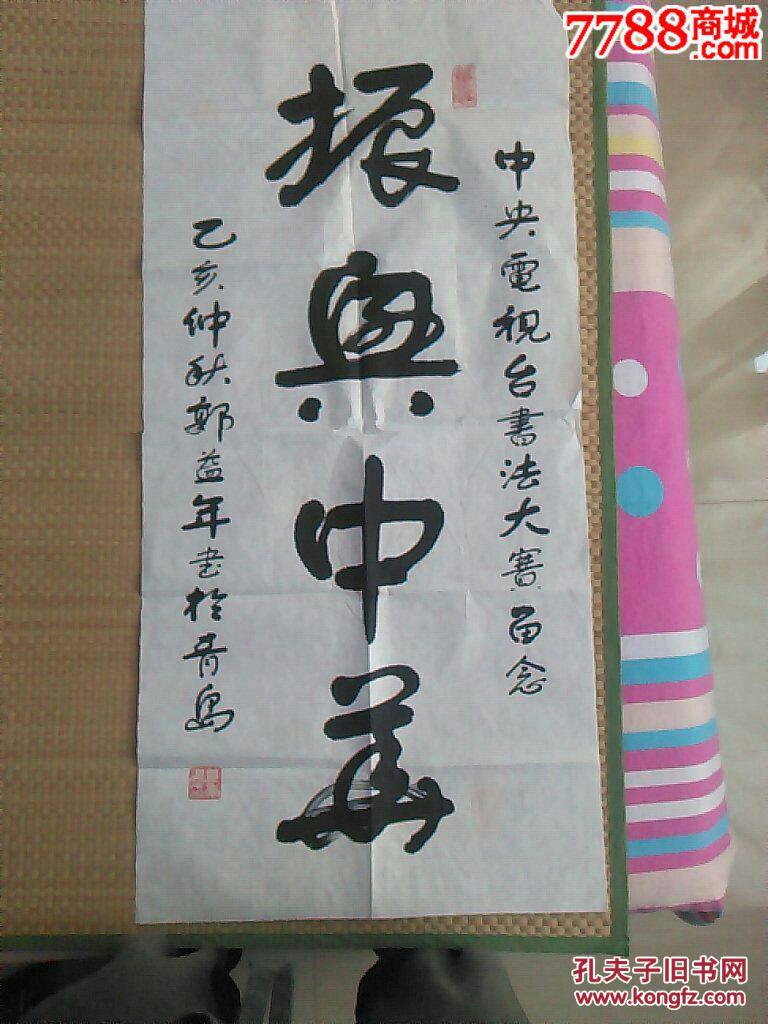 7788商城
.com
中央電視台書法大賽畄念
振興中華
乙亥仲秋郭益年书於青島
孔夫子旧书网
www.kongfz.com